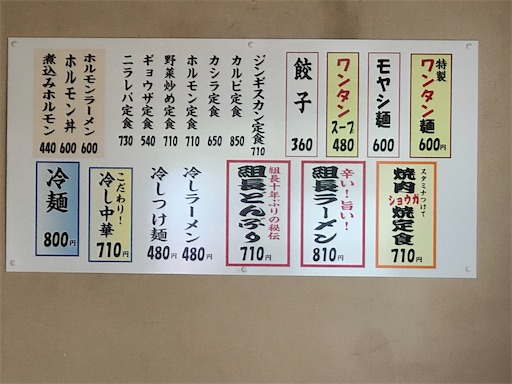 特製
ワンタン麺
600円
モヤシ麺
600
ワンタン
スープ
480
餃子
360
ジンギスカン定食
710
カルビ定食
850
カシラ定食
650
ホルモン定食
710
野菜炒め定食
710
ギョウザ定食
540
ニラレバ定食
730
ホルモンラーメン
600
ホルモン丼
600
煮込みホルモン
440
スタミナつけて
焼肉
ショウガ
焼定食
710円
辛い!旨い!
組長ラーメン
810円
組長十年ぶりの秘伝
組長とんぷる
710円
冷しラーメン
480円
冷しつけ麺
480円
こだわり!
冷し中華
710円
冷麺
800円